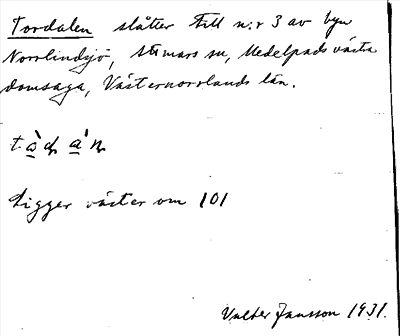 Tordalen slåtter till n:r 3 av byn
Norrlindsjö, Stömars sn, Medelpads västra
domsaga, Västernorrlands län.
Ligger väster om 101
Valter Jansson 1931.